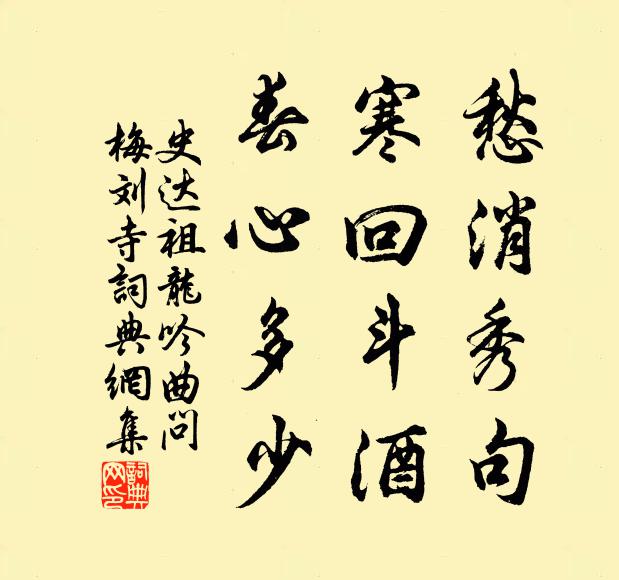 愁消秀句
寒回斗酒
春心多少
史达祖龍吟曲问
梅刘寺詞典網集
詞典
网印